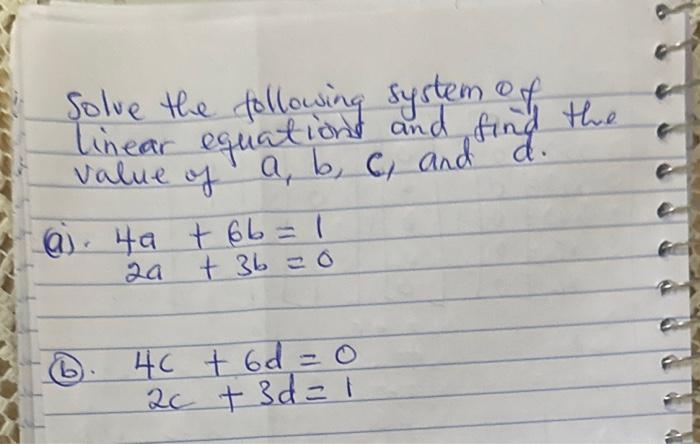 Solve the following system of
linear equations and find the
value of a, b, c, and d.
(a). 4a + 6b = 1
2a + 3b = 0
(b). 4c + 6d = 0
2c + 3d = 1